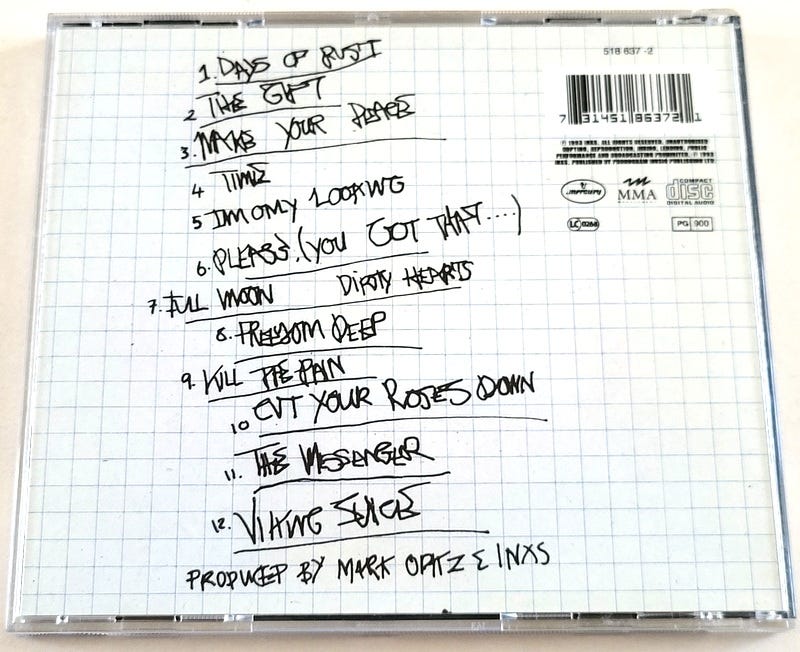 1. DAYS OF RUST
2 THE GIFT
3. MAKE YOUR PEACE
4 TIME
5 I'M ONLY LOOKING
6. PLEASE, (YOU GOT THAT....)
7. FULL MOON DIRTY HEARTS
8. FREEDOM DEEP
9. KILL THE PAIN
10 CUT YOUR ROSES DOWN
11. THE MESSENGER
12. VIKING JUICE
PRODUCED BY MARK OPITZ & INXS
518 637 -2
7 31451 86372 1
℗ 1993 INXS. ALL RIGHTS RESERVED. UNAUTHORISED
COPYING, REPRODUCTION, HIRING, LENDING, PUBLIC
PERFORMANCE AND BROADCASTING PROHIBITED. © 1993
INXS. PUBLISHED BY POLYGRAM MUSIC PUBLISHING LTD
mercury
MMA
COMPACT
disc
DIGITAL AUDIO
LC 0268
PG 900